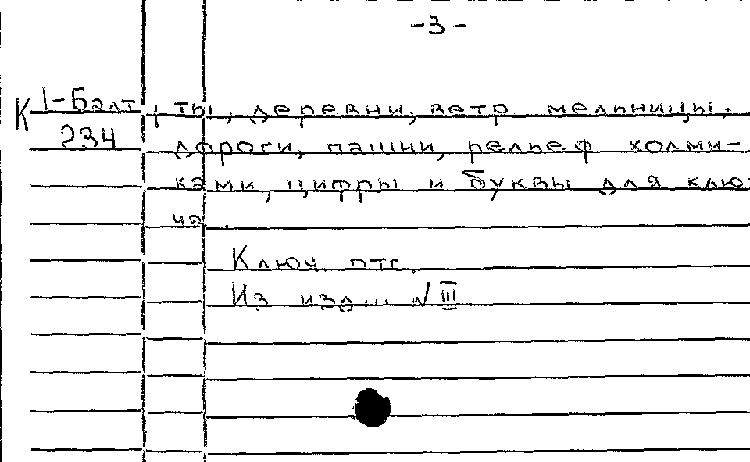 -3-
К 1-Балт / 234
ты, деревни, ветр. мельницы,
дороги, пашни, рельеф холми-
ками, цифры и буквы для клю-
ча.
Ключ отс.
Из изд... № III